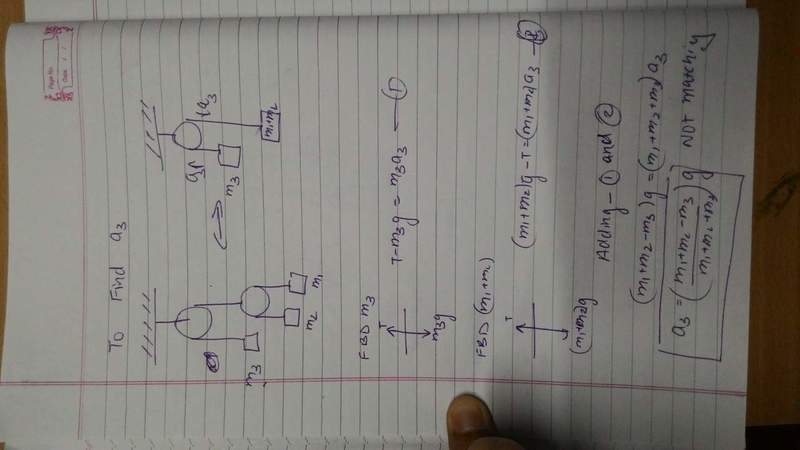 Page No.
Date
To Find a3
m3
m2
m1
a3
a3
m3
m1+m2
FBD m3
T
m3g
T-m3g = m3a3 — ①
FBD (m1+m2)
T
(m1+m2)g
(m1+m2)g - T = (m1+m2)a3 — ②
Adding - ① and ②
(m1+m2-m3)g = (m1+m2+m3)a3
a3 = (m1+m2-m3 / m1+m2+m3) g
NOT matching